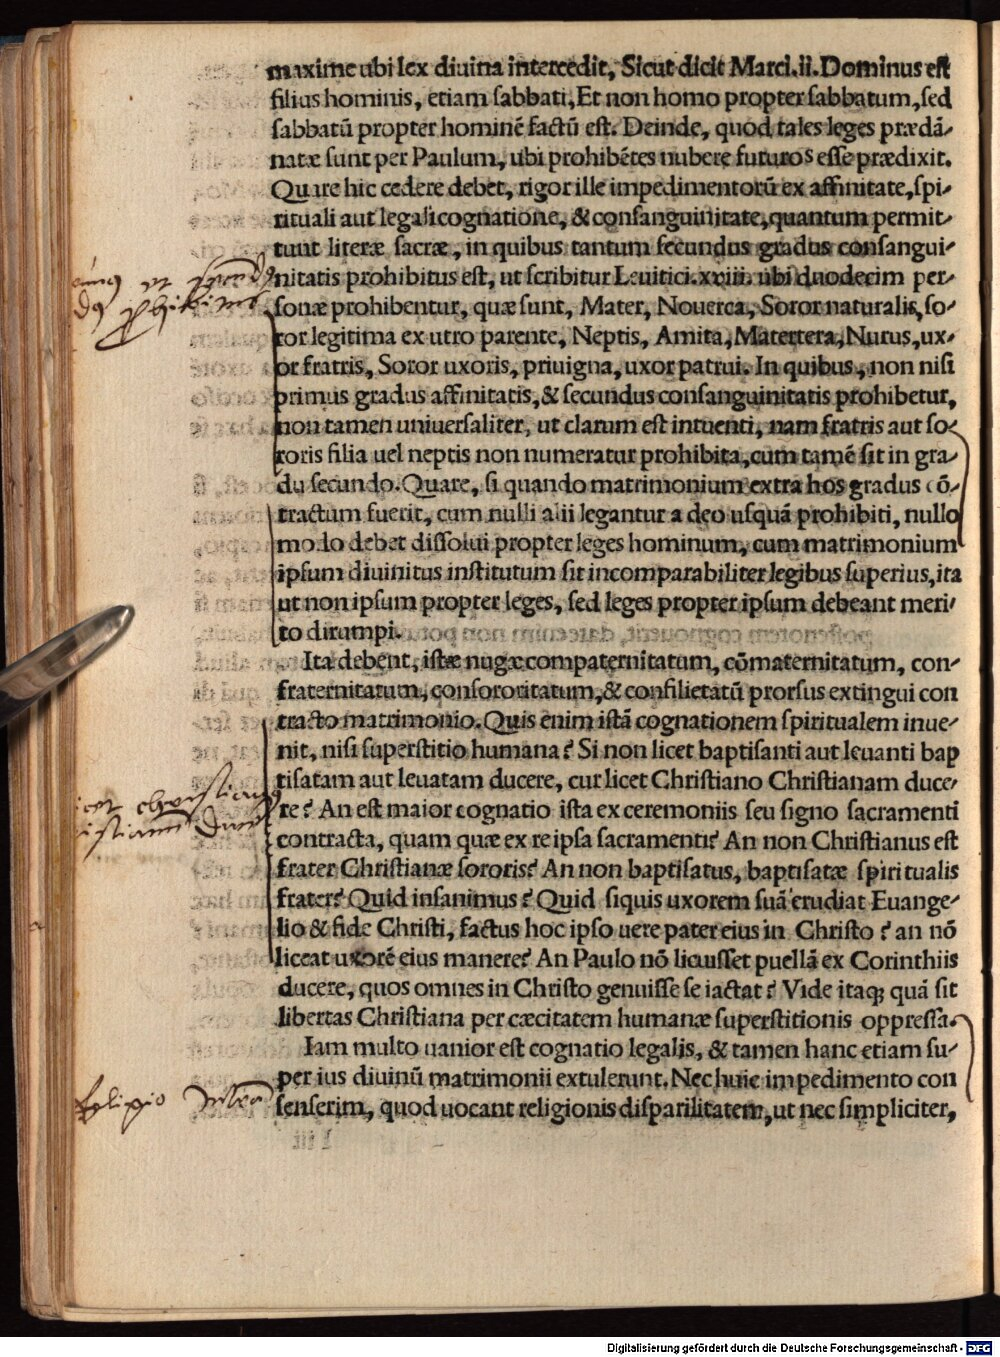 maxime ubi lex diuina intercedit, Sicut dicit Marci.ii. Dominus est
filius hominis, etiam sabbati, Et non homo propter sabbatum, sed
sabbatū propter hominē factū est. Deinde, quod tales leges prædā-
natæ sunt per Paulum, ubi prohibētes nubere futuros esse prædixit.
Quare hic cedere debet, rigor ille impedimentorū ex affinitate, spi-
rituali aut legali cognatione, & consanguinitate, quantum permit-
tunt literæ sacræ, in quibus tantum secundus gradus consangui-
nitatis prohibitus est, ut scribitur Leuitici.xviii. ubi duodecim per-
sonæ prohibentur, quæ sunt, Mater, Nouerca, Soror naturalis, so-
ror legitima ex utro parente, Neptis, Amita, Matertera, Nurus, ux-
or fratris, Soror uxoris, priuigna, uxor patrui. In quibus, non nisi
primus gradus affinitatis, & secundus consanguinitatis prohibetur,
non tamen uniuersaliter, ut clarum est intuenti, nam fratris aut so-
roris filia uel neptis non numeratur prohibita, cum tamē sit in gra-
du secundo. Quare, si quando matrimonium extra hos gradus cō-
tractum fuerit, cum nulli alii legantur a deo usquā prohibiti, nullo
modo debet dissolui propter leges hominum, cum matrimonium
ipsum diuinitus institutum sit incomparabiliter legibus superius, ita
ut non ipsum propter leges, sed leges propter ipsum debeant meri-
to dirumpi.
Ita debent, istæ nugæ compaternitatum, cōmaternitatum, con-
fraternitatum, consororitatum, & confilietatū prorsus extingui con
tracto matrimonio. Quis enim istā cognationem spiritualem inue-
nit, nisi superstitio humana? Si non licet baptisanti aut leuanti bap
tisatam aut leuatam ducere, cur licet Christiano Christianam duce-
re? An est maior cognatio ista ex ceremoniis seu signo sacramenti
contracta, quam quæ ex re ipsa sacramenti? An non Christianus est
frater Christianæ sororis? An non baptisatus, baptisatæ spiritualis
frater? Quid insanimus? Quid siquis uxorem suā erudiat Euange-
lio & fide Christi, factus hoc ipso uere pater eius in Christo? an nō
liceat uxorē eius manere? An Paulo nō licuisset puellā ex Corinthiis
ducere, quos omnes in Christo genuisse se iactat? Vide itaq; quā sit
libertas Christiana per cæcitatem humanæ superstitionis oppressa.
Iam multo uanior est cognatio legalis, & tamen hanc etiam su-
per ius diuinū matrimonii extulerunt. Nec huic impedimento con
senserim, quod uocant religionis disparilitatem, ut nec simpliciter,
Digitalisierung gefördert durch die Deutsche Forschungsgemeinschaft - DFG